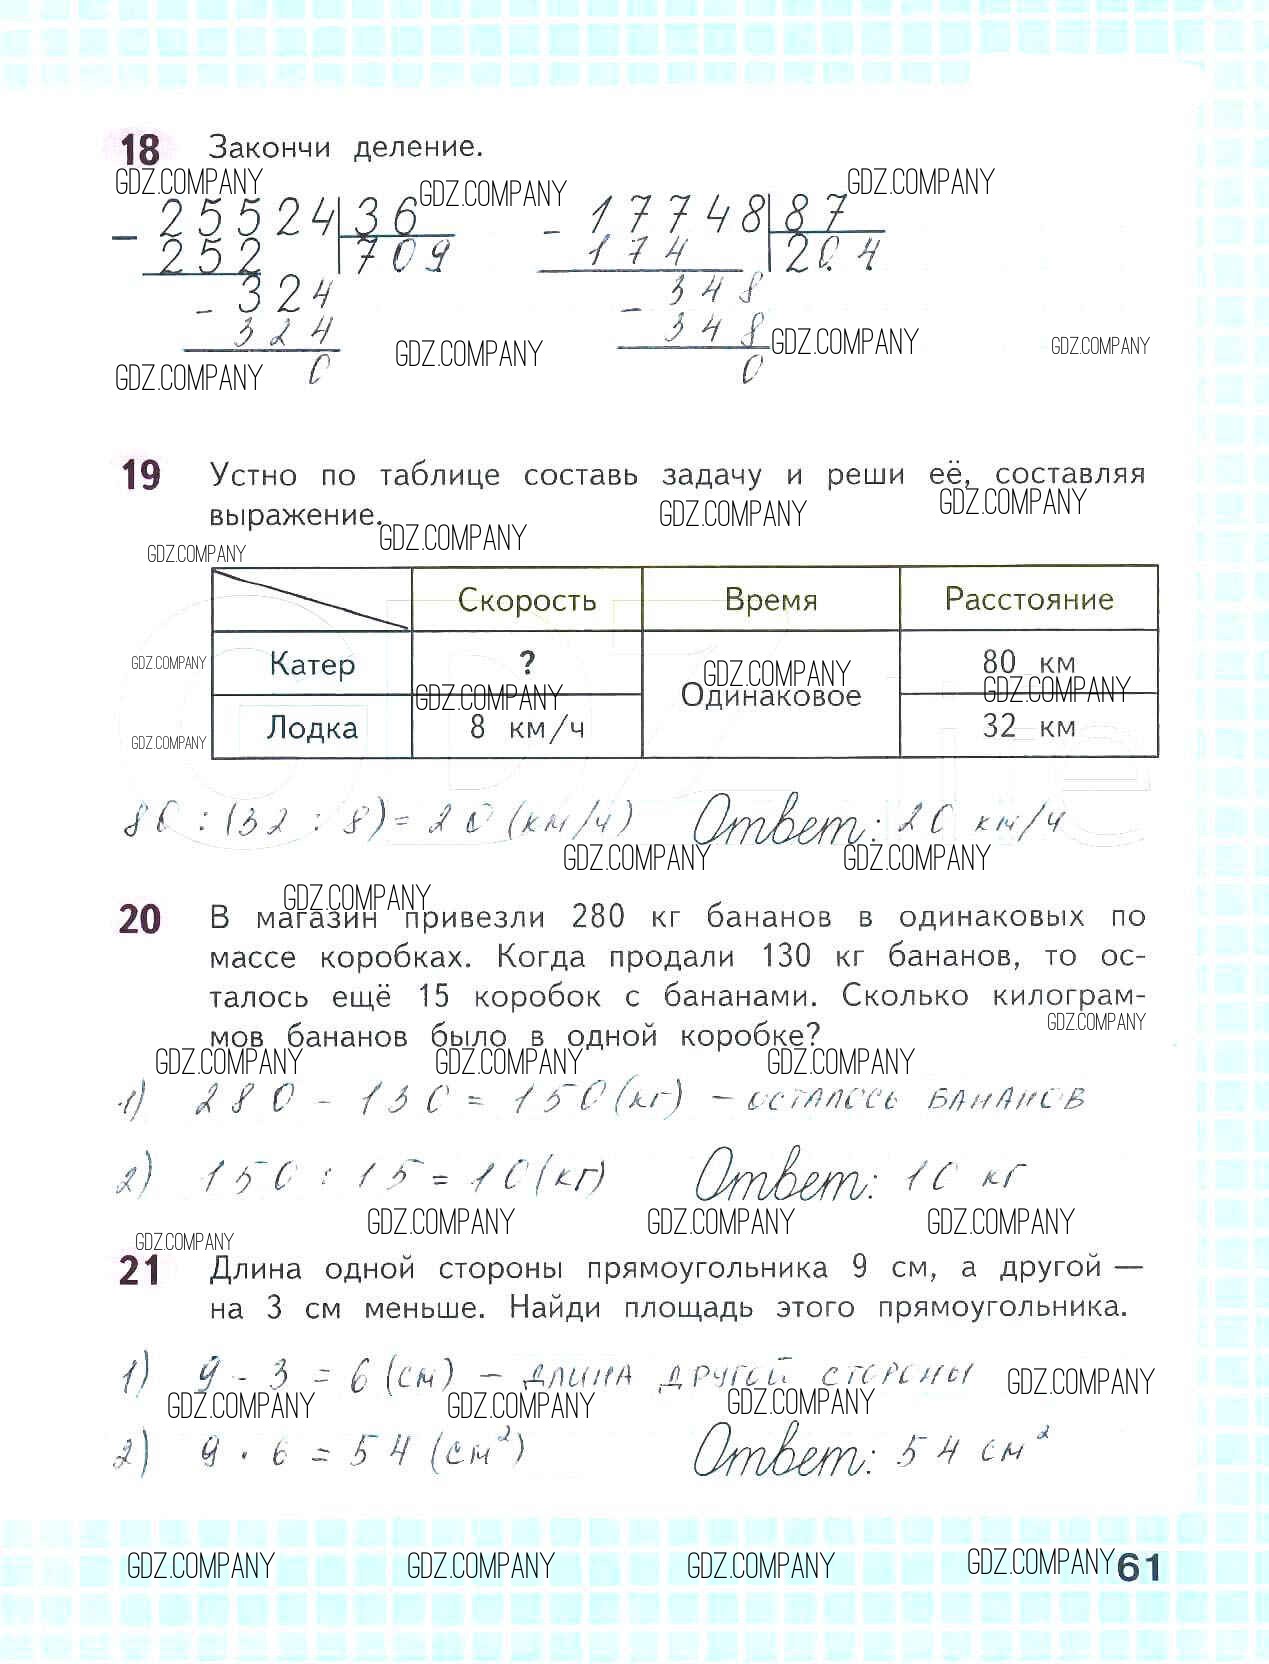 18 Закончи деление.
GDZ.COMPANY GDZ.COMPANY GDZ.COMPANY
- 25524 | 36 - 17748 | 87
252 709 174 204
- 324 - 348
324 348
GDZ.COMPANY GDZ.COMPANY GDZ.COMPANY
GDZ.COMPANY 0 0
19 Устно по таблице составь задачу и реши её, составляя
выражение. GDZ.COMPANY GDZ.COMPANY GDZ.COMPANY
GDZ.COMPANY
Скорость Время Расстояние
GDZ.COMPANY Катер ? GDZ.COMPANY 80 км
GDZ.COMPANY Одинаковое GDZ.COMPANY
GDZ.COMPANY Лодка 8 км/ч 32 км
80 : (32 : 8) = 20 (км/ч) Ответ: 20 км/ч
GDZ.COMPANY GDZ.COMPANY
GDZ.COMPANY
20 В магазин привезли 280 кг бананов в одинаковых по
массе коробках. Когда продали 130 кг бананов, то ос-
талось ещё 15 коробок с бананами. Сколько килограм-
мов бананов было в одной коробке? GDZ.COMPANY
GDZ.COMPANY GDZ.COMPANY GDZ.COMPANY
1) 280 - 130 = 150 (кг) - осталось бананов
2) 150 : 15 = 10 (кг) Ответ: 10 кг
GDZ.COMPANY GDZ.COMPANY GDZ.COMPANY
GDZ.COMPANY
21 Длина одной стороны прямоугольника 9 см, а другой —
на 3 см меньше. Найди площадь этого прямоугольника.
1) 9 - 3 = 6 (см) - длина другой стороны GDZ.COMPANY
GDZ.COMPANY GDZ.COMPANY GDZ.COMPANY
2) 9 · 6 = 54 (см²) Ответ: 54 см²
GDZ.COMPANY GDZ.COMPANY GDZ.COMPANY GDZ.COMPANY 61